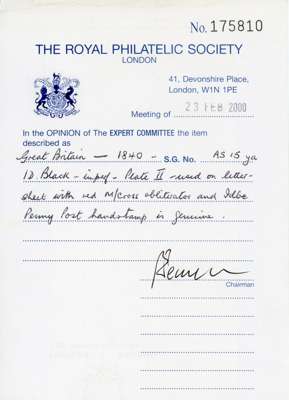 No. 175810
THE ROYAL PHILATELIC SOCIETY
LONDON
41, Devonshire Place,
London, W1N 1PE
Meeting of 23 FEB 2000
In the OPINION of The EXPERT COMMITTEE the item
described as
Great Britain — 1840 - S.G. No. AS15
1D Black - imperf - Plate II - used on letter-
sheet with red m/cross obliterator and
Penny Post handstamp is genuine.
Chairman